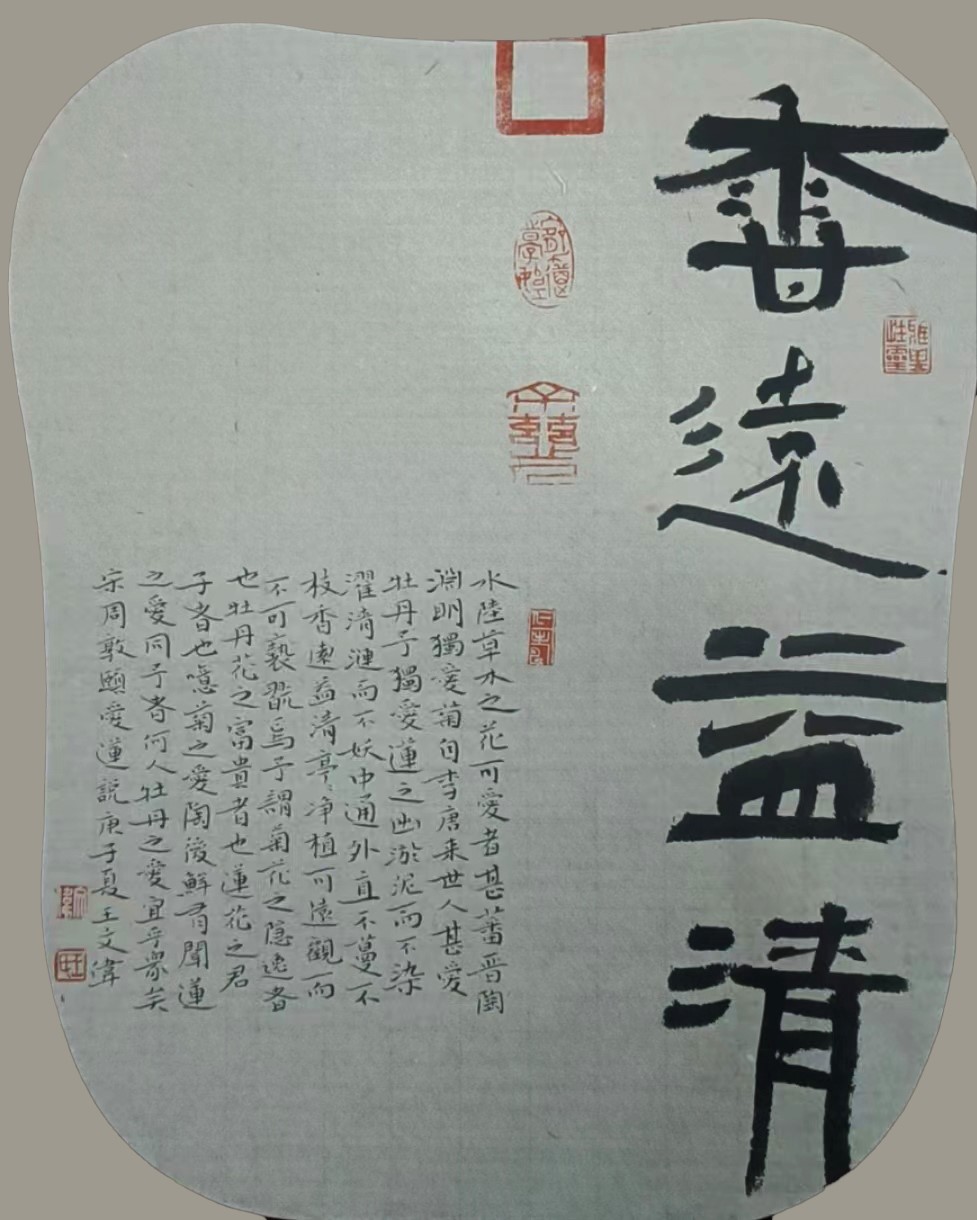 香遠益清
水陸草木之花可愛者甚蕃晋陶
淵明獨愛菊自李唐来世人甚愛
牡丹予獨愛蓮之出淤泥而不染
濯清漣而不妖中通外直不蔓不
枝香遠益清亭〻净植可遠觀而
不可褻翫焉予謂菊花之隱逸者
也牡丹花之富貴者也蓮花之君
子者也噫菊之愛陶後鮮有聞蓮
之愛同予者何人牡丹之愛宜乎衆矣
宗周敦頤愛蓮説庚子夏王文偉